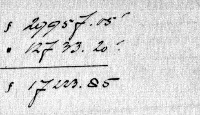 $ 29957.05
12733.20
$ 17223.85